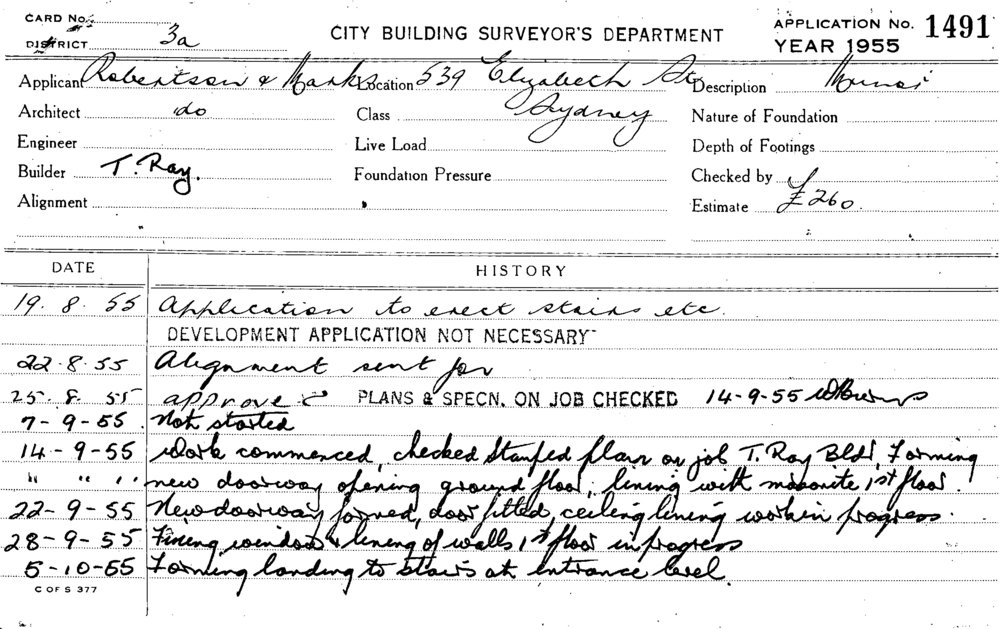 CARD No.
DISTRICT 3a
CITY BUILDING SURVEYOR'S DEPARTMENT
APPLICATION No. 1491
YEAR 1955
Applicant Robertson & Marks Location 539 Elizabeth St Description Minor
Architect do Class Sydney Nature of Foundation
Engineer Live Load Depth of Footings
Builder T. Ray. Foundation Pressure Checked by
Alignment Estimate £260.
DATE HISTORY
19. 8. 55 Application to erect stairs etc.
DEVELOPMENT APPLICATION NOT NECESSARY
22.8.55 Alignment sent for
25. 8. 55 approved PLANS & SPECN. ON JOB CHECKED 14-9-55
7-9-55. Not started
14-9-55 Work commenced, checked stamped plans on job T. Ray Bldr, Forming
" " " new doorway opening ground floor, lining with masonite 1st floor
22-9-55 New doorway formed, door fitted, ceiling lining work in progress.
28-9-55 Fixing windows & lining of walls 1st floor in progress
5-10-55 Forming landing to stairs at entrance level.
C OF S 377